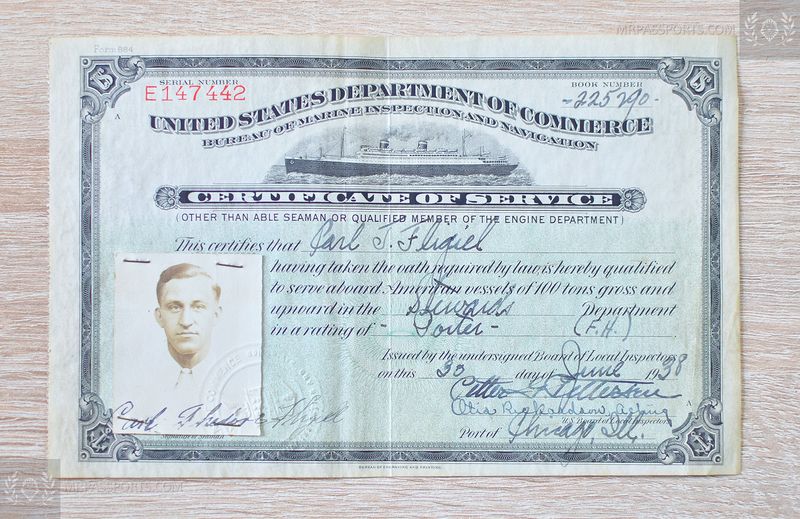 MRPASSPORTS.COM
Form 884
SERIAL NUMBER
E147442
BOOK NUMBER
-225290-
A
UNITED STATES DEPARTMENT OF COMMERCE
BUREAU OF MARINE INSPECTION AND NAVIGATION
CERTIFICATE OF SERVICE
(OTHER THAN ABLE SEAMAN OR QUALIFIED MEMBER OF THE ENGINE DEPARTMENT)
This certifies that Carl T. Fligiel
having taken the oath required by law is hereby qualified
to serve aboard American vessels of 100 tons gross and
upward in the Steward's Department
in a rating of - Porter - (F.H.)
Issued by the undersigned Board of Local Inspectors
on this 30 day of June 1938
Otis Richardson, Acting
U.S. Board of Local Inspectors
A
Carl
Port of Chicago, Ill.
BUREAU OF ENGRAVING AND PRINTING
MRPASSPORTS.COM